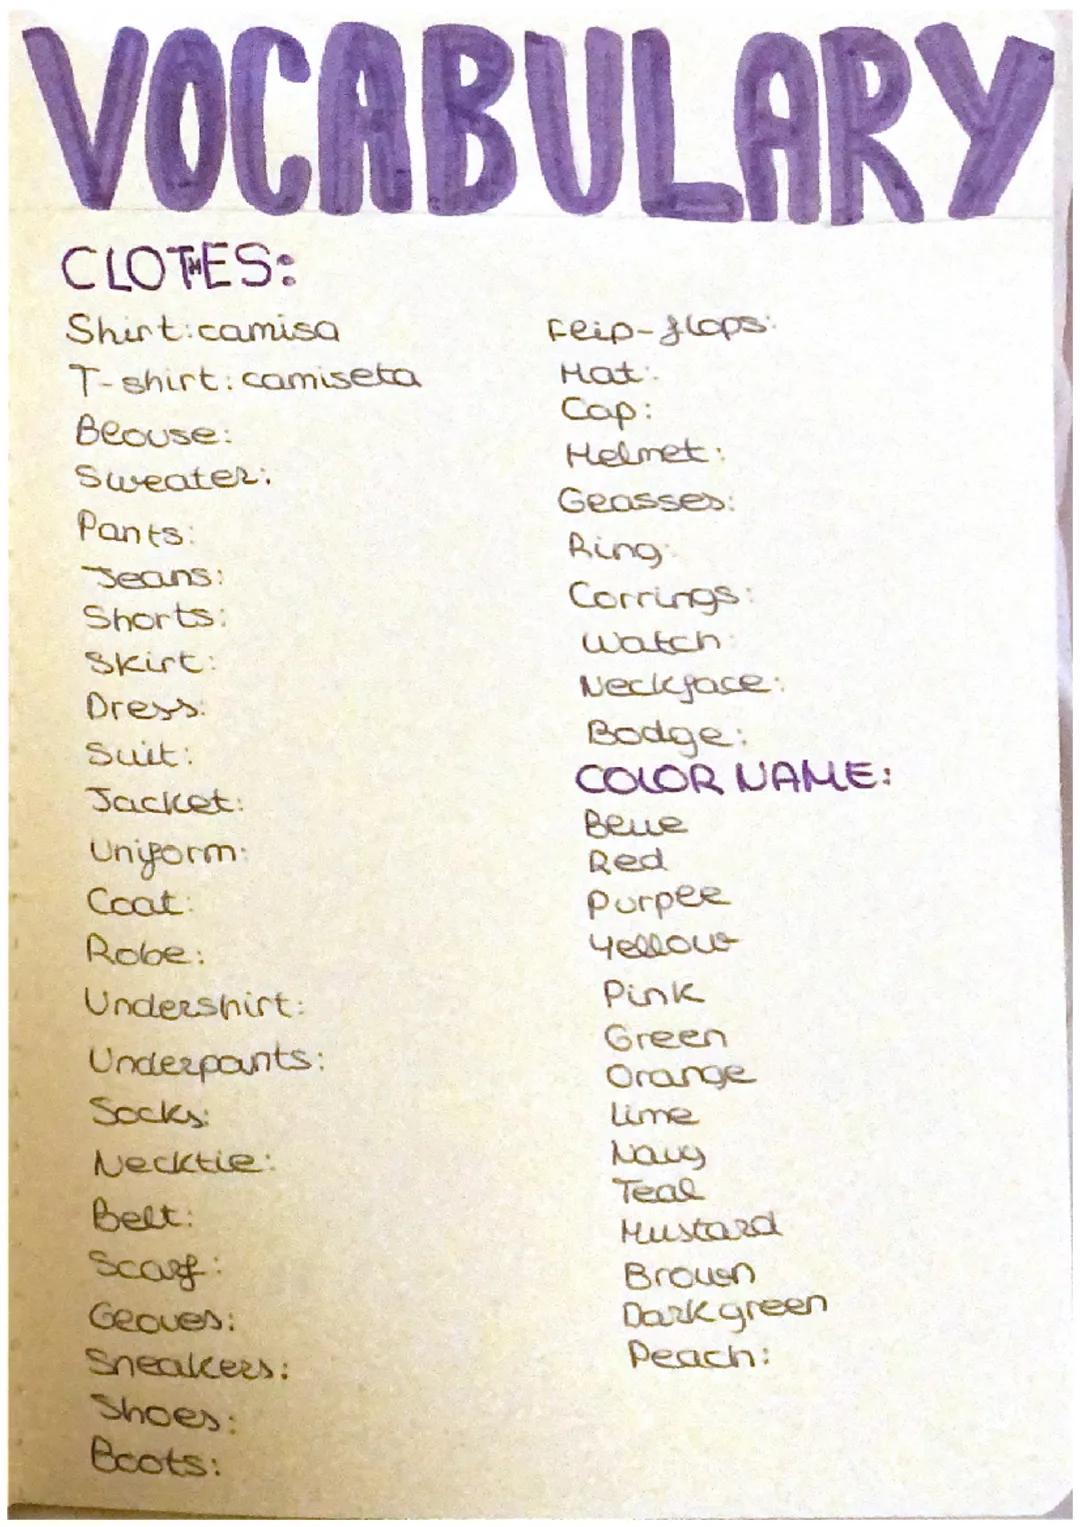 VOCABULARY
CLOTHES:
Shirt: camisa
T-shirt: camiseta
Blouse:
Sweater:
Pants:
Jeans:
Shorts:
Skirt:
Dress:
Suit:
Jacket:
Uniform:
Coat:
Robe:
Undershirt:
Underpants:
Socks:
Necktie:
Belt:
Scarf:
Gloves:
Sneakers:
Shoes:
Boots:
Flip-flops:
Hat:
Cap:
Helmet:
Glasses:
Ring:
Corrings:
Watch:
Neckface:
Bodge:
COLOR NAME:
Blue
Red
Purple
Yellow
Pink
Green
Orange
Lime
Navy
Teal
Mustard
Brown
Dark green
Peach: